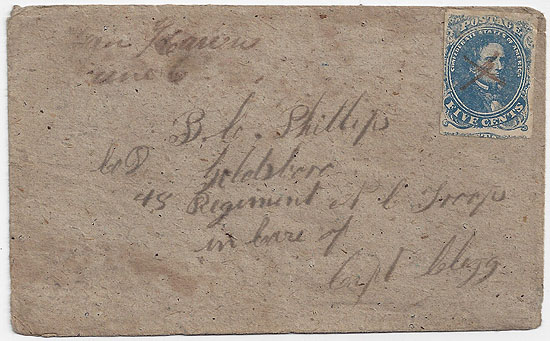 POSTAGE
CONFEDERATE STATES OF AMERICA
FIVE CENTS
B. C. Phillips
Co D Goldsboro
48 Regiment N C Troop
in care of
Capt Clegg